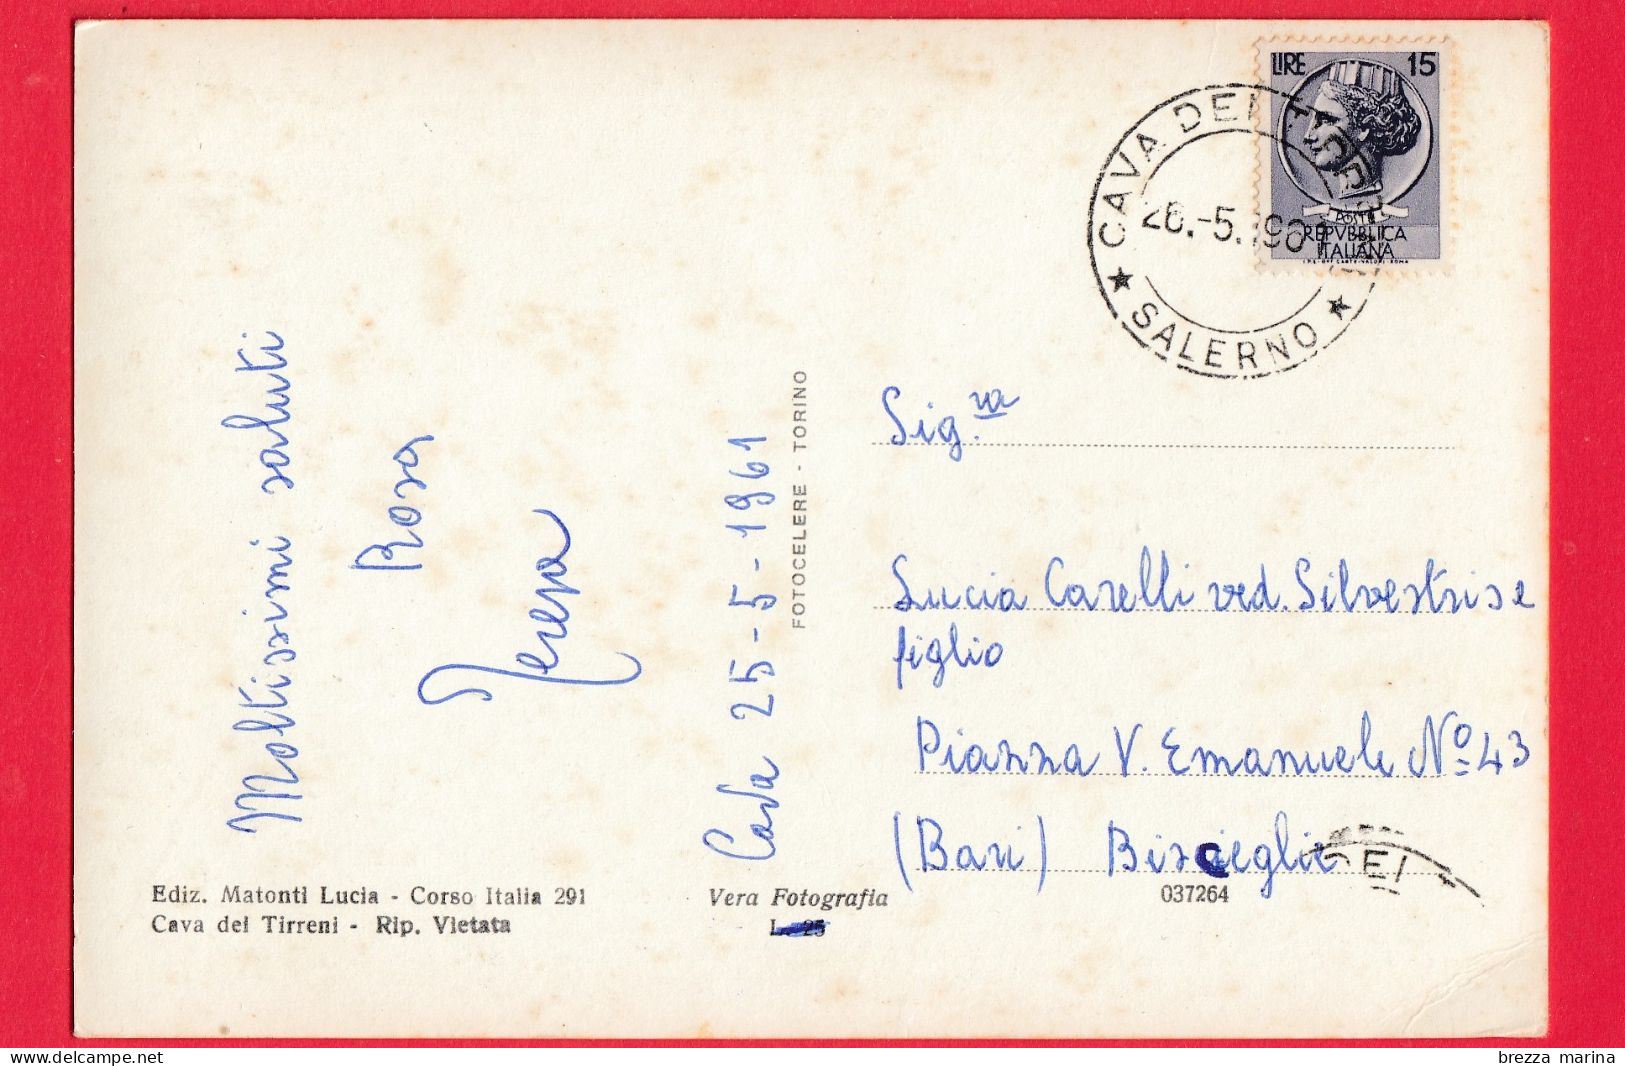 LIRE 15
POSTE
REPVBBLICA
ITALIANA
I.P.S. OFF. CARTE-VALORI ROMA
CAVA DEI TIRRENI
26.-5.1961
★ SALERNO ★
Moltissimi saluti
Rosa
Cava 25-5-1961
FOTOCELERE - TORINO
Sig.ra
Lucia Carelli ved. Silvestris e
figlio
Piazza V. Emanuele Nº 43
(Bari) Bisceglie
DEI
Ediz. Matonti Lucia - Corso Italia 291
Cava dei Tirreni - Rip. Vietata
Vera Fotografia
L. 25
037264
delcampe.net
brezza marina